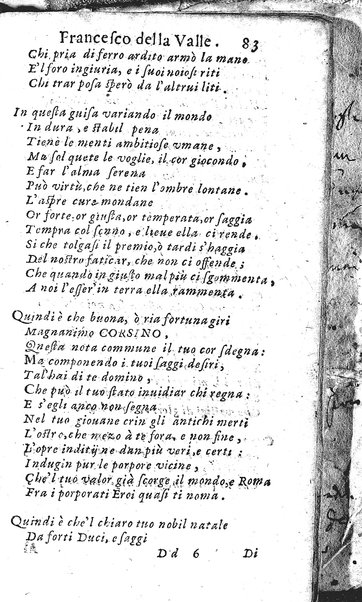 Francesco della Valle. 83
Chi pria di ferro ardito armò la mano
E'l foro ingiuria, e i suoi noiosi riti
Chi trar posa sperò da l'altrui liti.
In questa guisa variando il mondo
In dura, e stabil pena
Tiene le menti ambitiose vmane,
Ma sol quete le voglie, il cor giocondo,
E far l'alma serena
Può virtù, che ne tien l'ombre lontane.
L'aspre cure mondane
Or forte, or giusta, or temperata, or saggia
Tempra col senno, e lieue ella ci rende.
Si che tolgasi il premio, ò tardi s'haggia
Del nostro faticar, che non ci offende;
Che quando ingiusto mal più ci sgomenta,
A noi l'esser in terra ella rammenta.
Quindi è che buona, ò ria fortuna giri
Magnanimo CORSINO,
Questa nota commune il tuo cor sdegna:
Ma componendo i tuoi saggi desiri,
Tal'hai di te domino,
Che può il tuo stato inuidiar chi regna:
E s'egli anco non segna
Nel tuo giouane crin gli antichi merti
L'ostro, che mezo à te fora, e non fine,
L'opre inditij ne dan più veri, e certi:
Indugin pur le porpore vicine,
Che'l tuo valor già scorge il mondo, e Roma
Fra i porporati Eroi quasi ti noma.
Quindi è che'l chiaro tuo nobil natale
Da forti Duci, e saggi
D d 6 Di